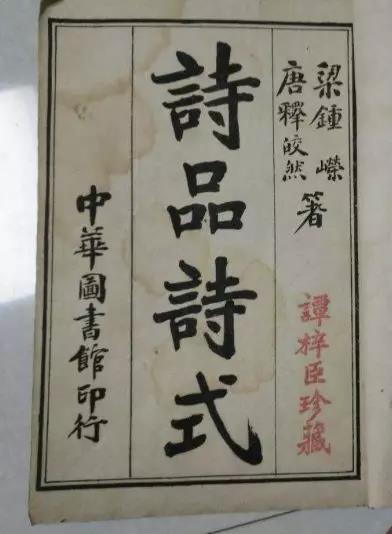 梁鍾嶸
唐釋皎然
著
譚梓臣珍藏
詩品詩式
中華圖書館印行